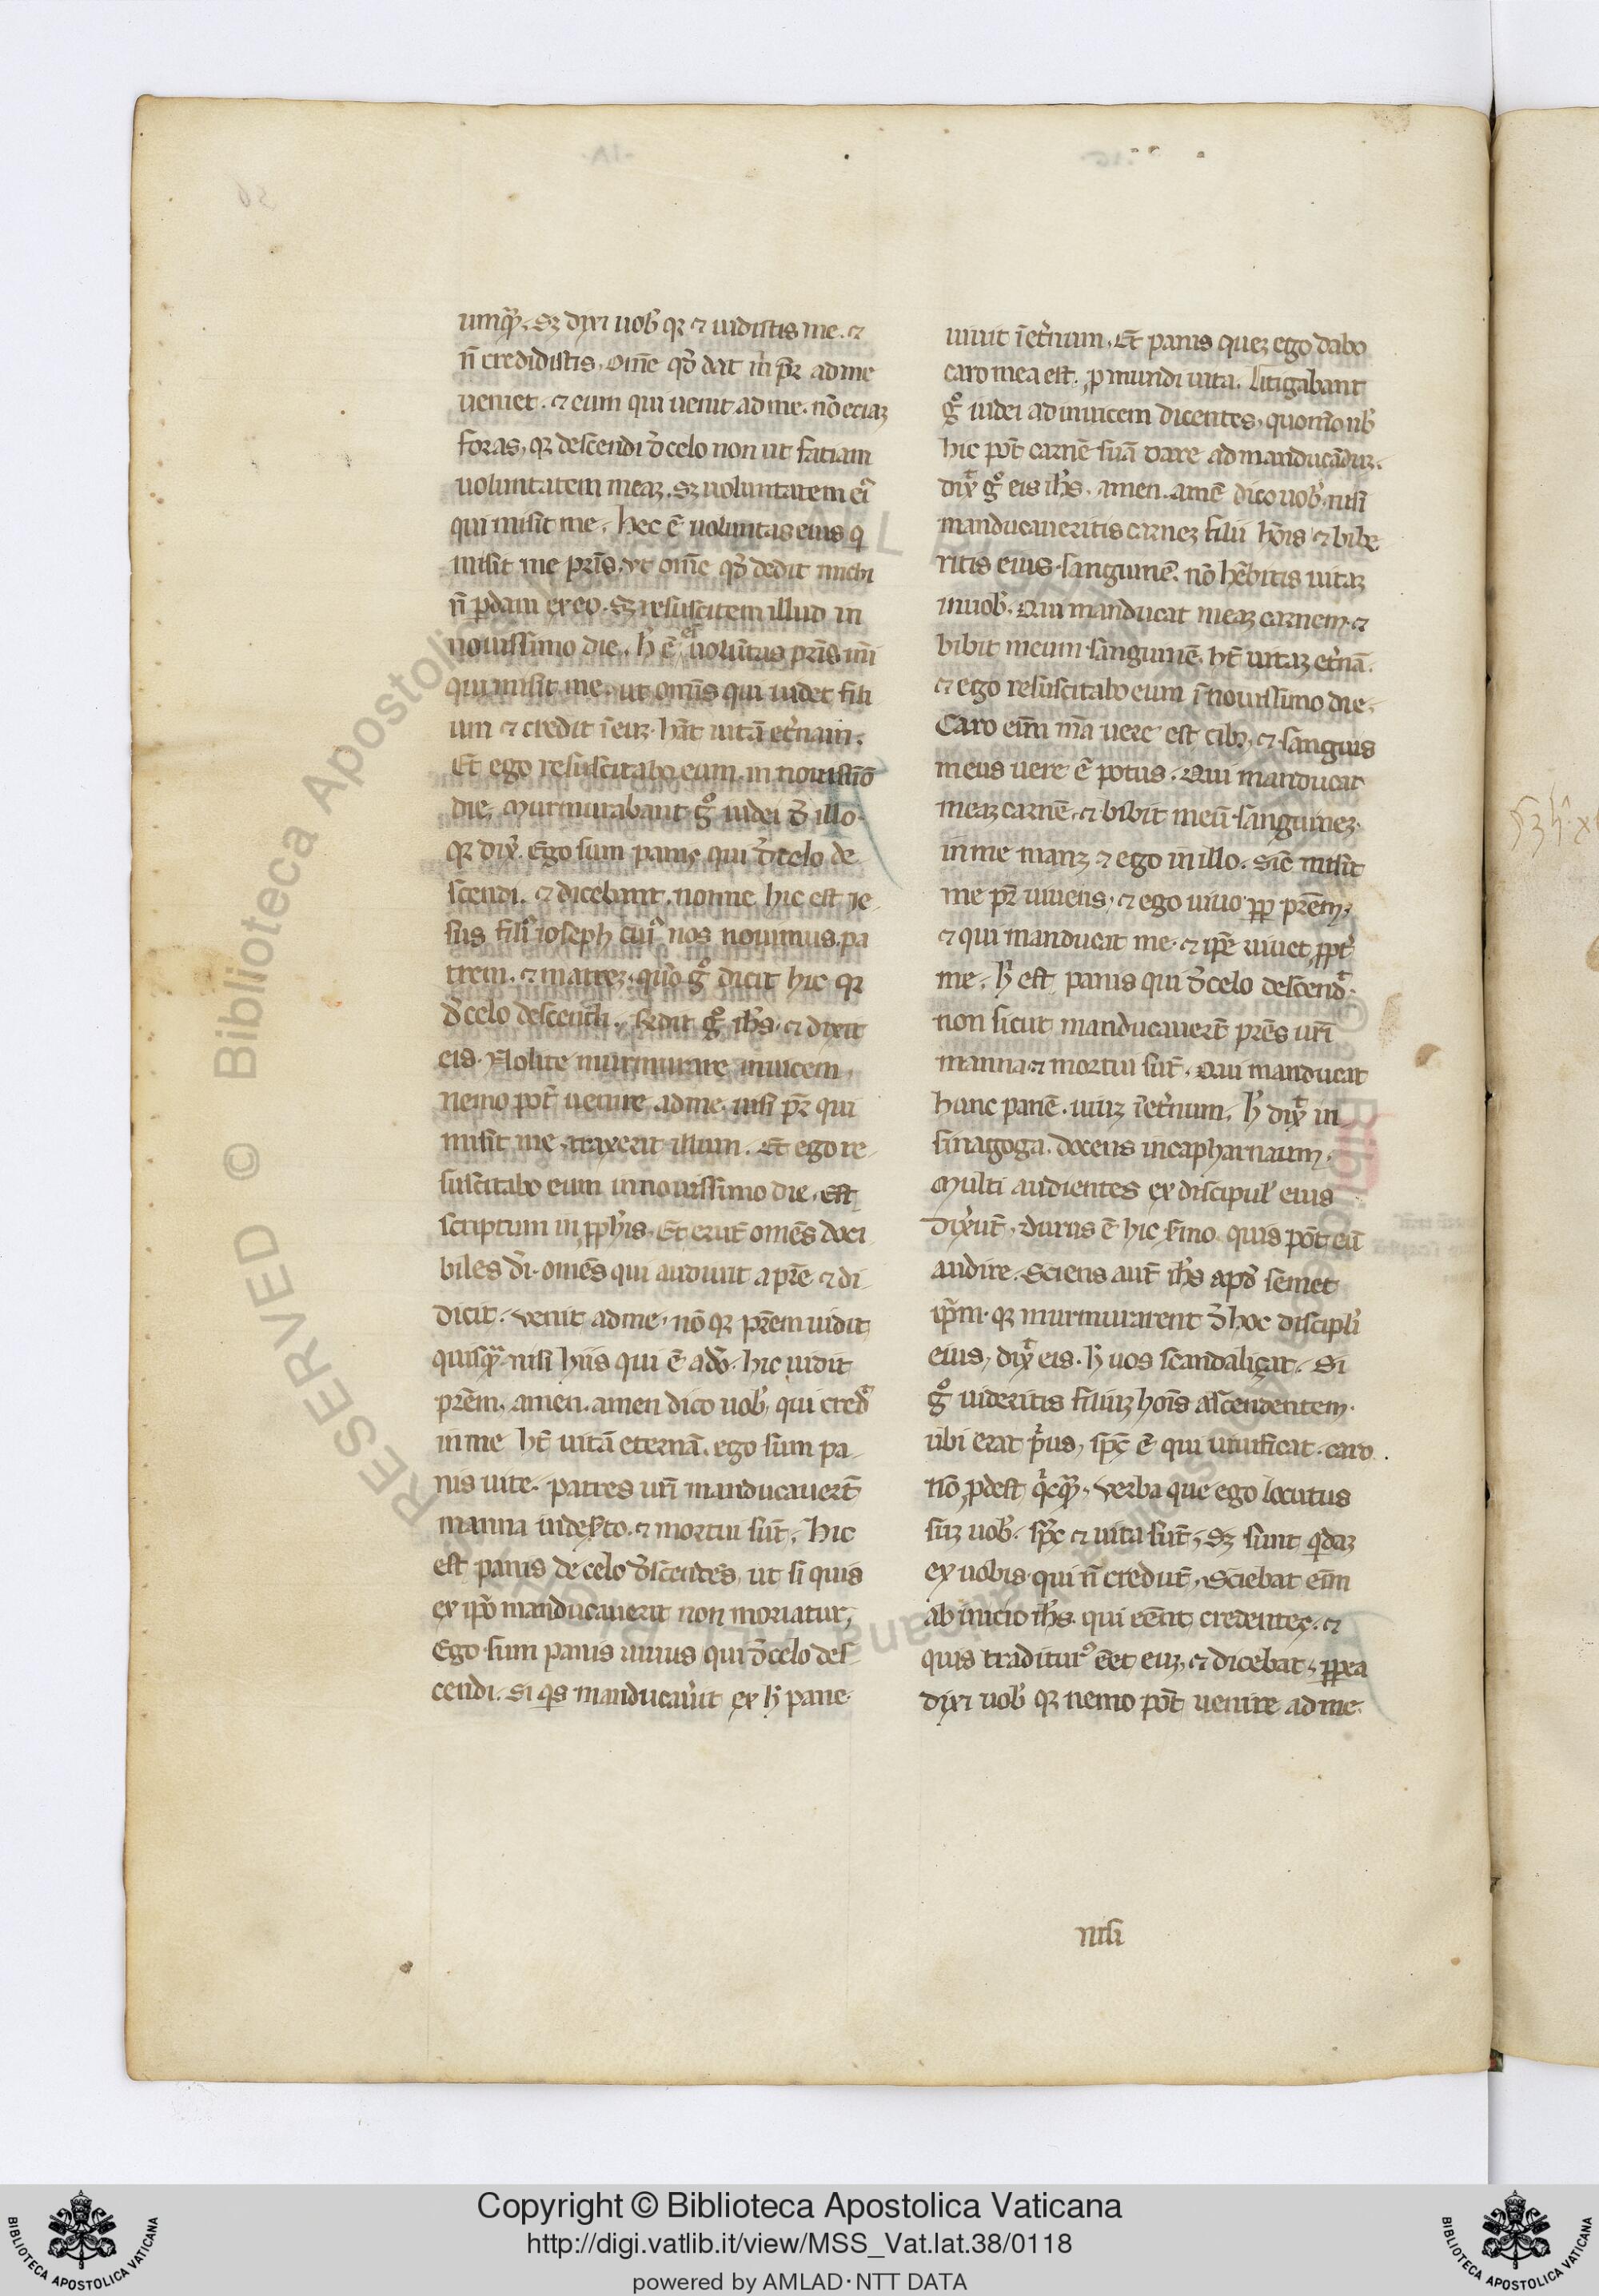 umqȝ. Sȝ dixi uob̾ qꝛ ⁊ uidistis me. ⁊
n̄ credidistis. Om̄e qd̾ dat m̓ pr̄ ad me
ueniet. ⁊ eum qui uenit ad me. nō eciaȝ
foras. qꝛ descendi d̓ celo non ut fatiam
uoluntatem meaȝ. Sȝ uoluntatem ei᷒
qui misit me. hec ē uoluntas eius q̇
misit me pr̄is. ut om̄e qd̾ dedit michi
n̄ ꝑdam ex eo. Sȝ resuscitem illud in
nouissimo die. h̓ ē ē uolūtas pr̄is mī
qui misit me. ut omīs qui uidet fili
um ⁊ credit ī euȝ. hāt uitā et̓nam.
Et ego resuscitabo eum in nouissīo
die. Murmurabant gͦ iudei d̓ illo.
qꝛ dix̓. Ego sum panis qui d̓ celo de
scendi. ⁊ dicebant. nonne hic est ie
sus fili᷒ ioseph cui᷒ nos nouimus pa
trem. ⁊ matreȝ. quō gͦ dicit hic qꝛ
d̓ celo descendi. R̄dit gͦ ih̄s. ⁊ dixit
eis. Nolite murmurare inuicem.
nemo pōt uenire ad me. nisi pr̄ qui
misit me traxerit illum. Et ego re
suscitabo eum in nouissimo die. Est
scriptum in ꝓph̄is. Et erūt omēs doci
biles dī. omēs qui audiuit a pr̄e ⁊ di
dicit. uenit ad me. nō qꝛ pr̄em uidit
quisqꝫ. nisi hiis qui ē a dō. hic uidit
pr̄em. amen. amen dico uob̾. qui cred̓
in me ht̄ uitā eternā. ego sum pa
nis uite. patres ur̄i manducauerūt
manna in dexto. ⁊ mortui sūt. hic
est panis de celo d̓scendēs. ut si quis
ex ip̄o manducauerit non moriatur.
Ego sum panis uiuus qui d̓ celo des
cendi. Si qs manducau̓it ex h̓ pane
uiuit ī et̓num. Et panis queȝ ego dabo
caro mea est. ꝓ mundi uita. Litigabant
gͦ iudei ad inuicem dicentes. quomō nb̾
hic pōt carnē suā dare ad manducādū.
dix̓ gͦ eis ih̄s. amen. amē dico uob̾. nisi
manducaueritis carneȝ filii hōis ⁊ bibe
ritis eius sanguinē. nō hēbitis uitaȝ
in uob̾. Qui manducat meaȝ carnem. ⁊
bibit meum sanguinē. ht̄ uitaȝ et̓nā.
⁊ ego resuscitabo eum ī nouissimo die.
Caro enī mā uere est cib᷒. ⁊ sanguis
meus uere ē potus. Qui manducat
meaȝ carnē. ⁊ bibit meū sanguineȝ.
in me manȝ ⁊ ego in illo. Sic̄ misit
me pr̄ uiuens. ⁊ ego uiuo ꝓp pr̄em.
⁊ qui manducat me. ⁊ ip̄e uiuet ꝓpt̓
me. h̓ est panis qui d̓ celo descend̓.
non sicut manducauerūt pr̄es ur̄i
manna ⁊ mortui sūt. Qui manducat
hunc panē. uiuȝ ī et̓num. h̓ dix̓ in
sinagoga. docens in capharnaum.
Multi audientes ex discipul̓ eius
dix̓ūt. durus ē hic s̓mo. quis pōt eū
audire. Sciens aūt ih̄s apd̓ semet
ip̄m. qꝛ murmurarent d̓ hoc discipl̓i
eius. dix̓ eis. h̓ uos scandaliçat. Si
gͦ uideritis filiuȝ hōis ascendentem.
ubi erat p̓us. sp̄c ē qui uiuificat. caro
nō ꝓdest q̇cqȝ. Verba que ego locutus
suȝ uob̾. sp̄c ⁊ uita sūt. Sȝ sunt qdaȝ
ex uobis qui n̄ credūt. Sciebat enī
ab inicio ih̄s. qui eēnt credentes. ⁊
quis traditur᷒ eēt euȝ. ⁊ dicebat. ꝓpea
dixi uob̾ qꝛ nemo pōt uenire ad me.
nisi
Copyright © Biblioteca Apostolica Vaticana
http://digi.vatlib.it/view/MSS_Vat.lat.38/0118
powered by AMLAD·NTT DATA
BIBLIOTECA APOSTOLICA VATICANA
BIBLIOTECA APOSTOLICA VATICANA